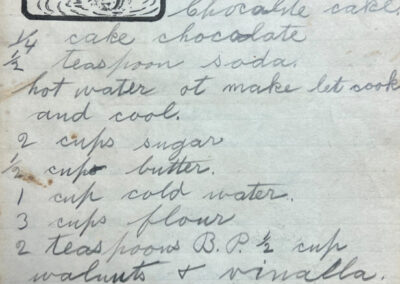 Chocolate cake.
1/4 cake chocolate
1/2 teaspoon soda.
hot water ot make let cook
and cool.
2 cups sugar
1/2 cup butter.
1 cup cold water.
3 cups flour
2 teaspoons B.P. 1/2 cup
walnuts & vinalla.